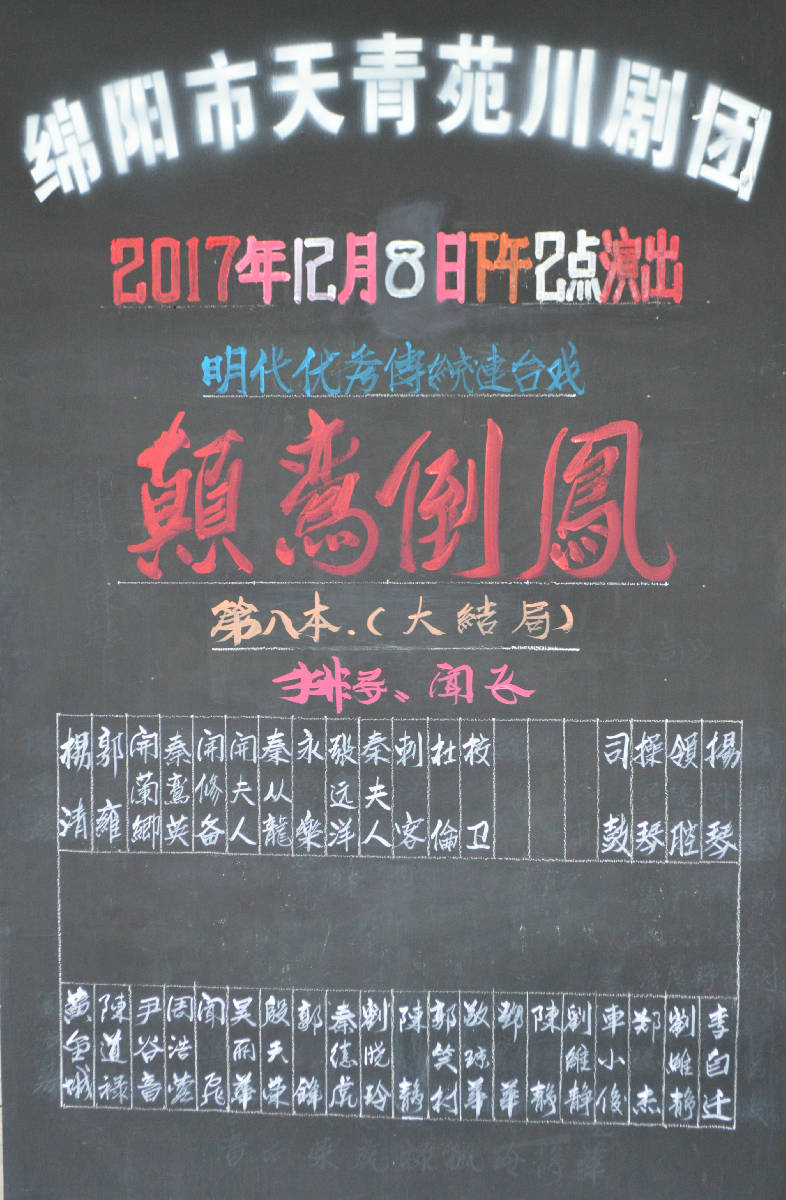 绵阳市天青苑川剧团
2017年12月8日下午2点演出
明代优秀傳統連台戏
顛鸞倒鳳
第八本.(大結局)
排导、闻飞
楊清 郭雍 開蘭鄉 秦鸞英 開修备 開夫人 秦从龍 永樂 張远洋 秦夫人 刺客 杜倫 校卫 司鼓 操琴 領腔 揚琴
黃金城 陳道禄 尹谷音 周浩然 闻飛 吴丽華 殷天荣 郭餘 秦德虎 劉晓玲 陳静 郭笑村 敬琼華 鄧華 陳静 劉維静 車小俊 郑杰 劉維静 李自迁